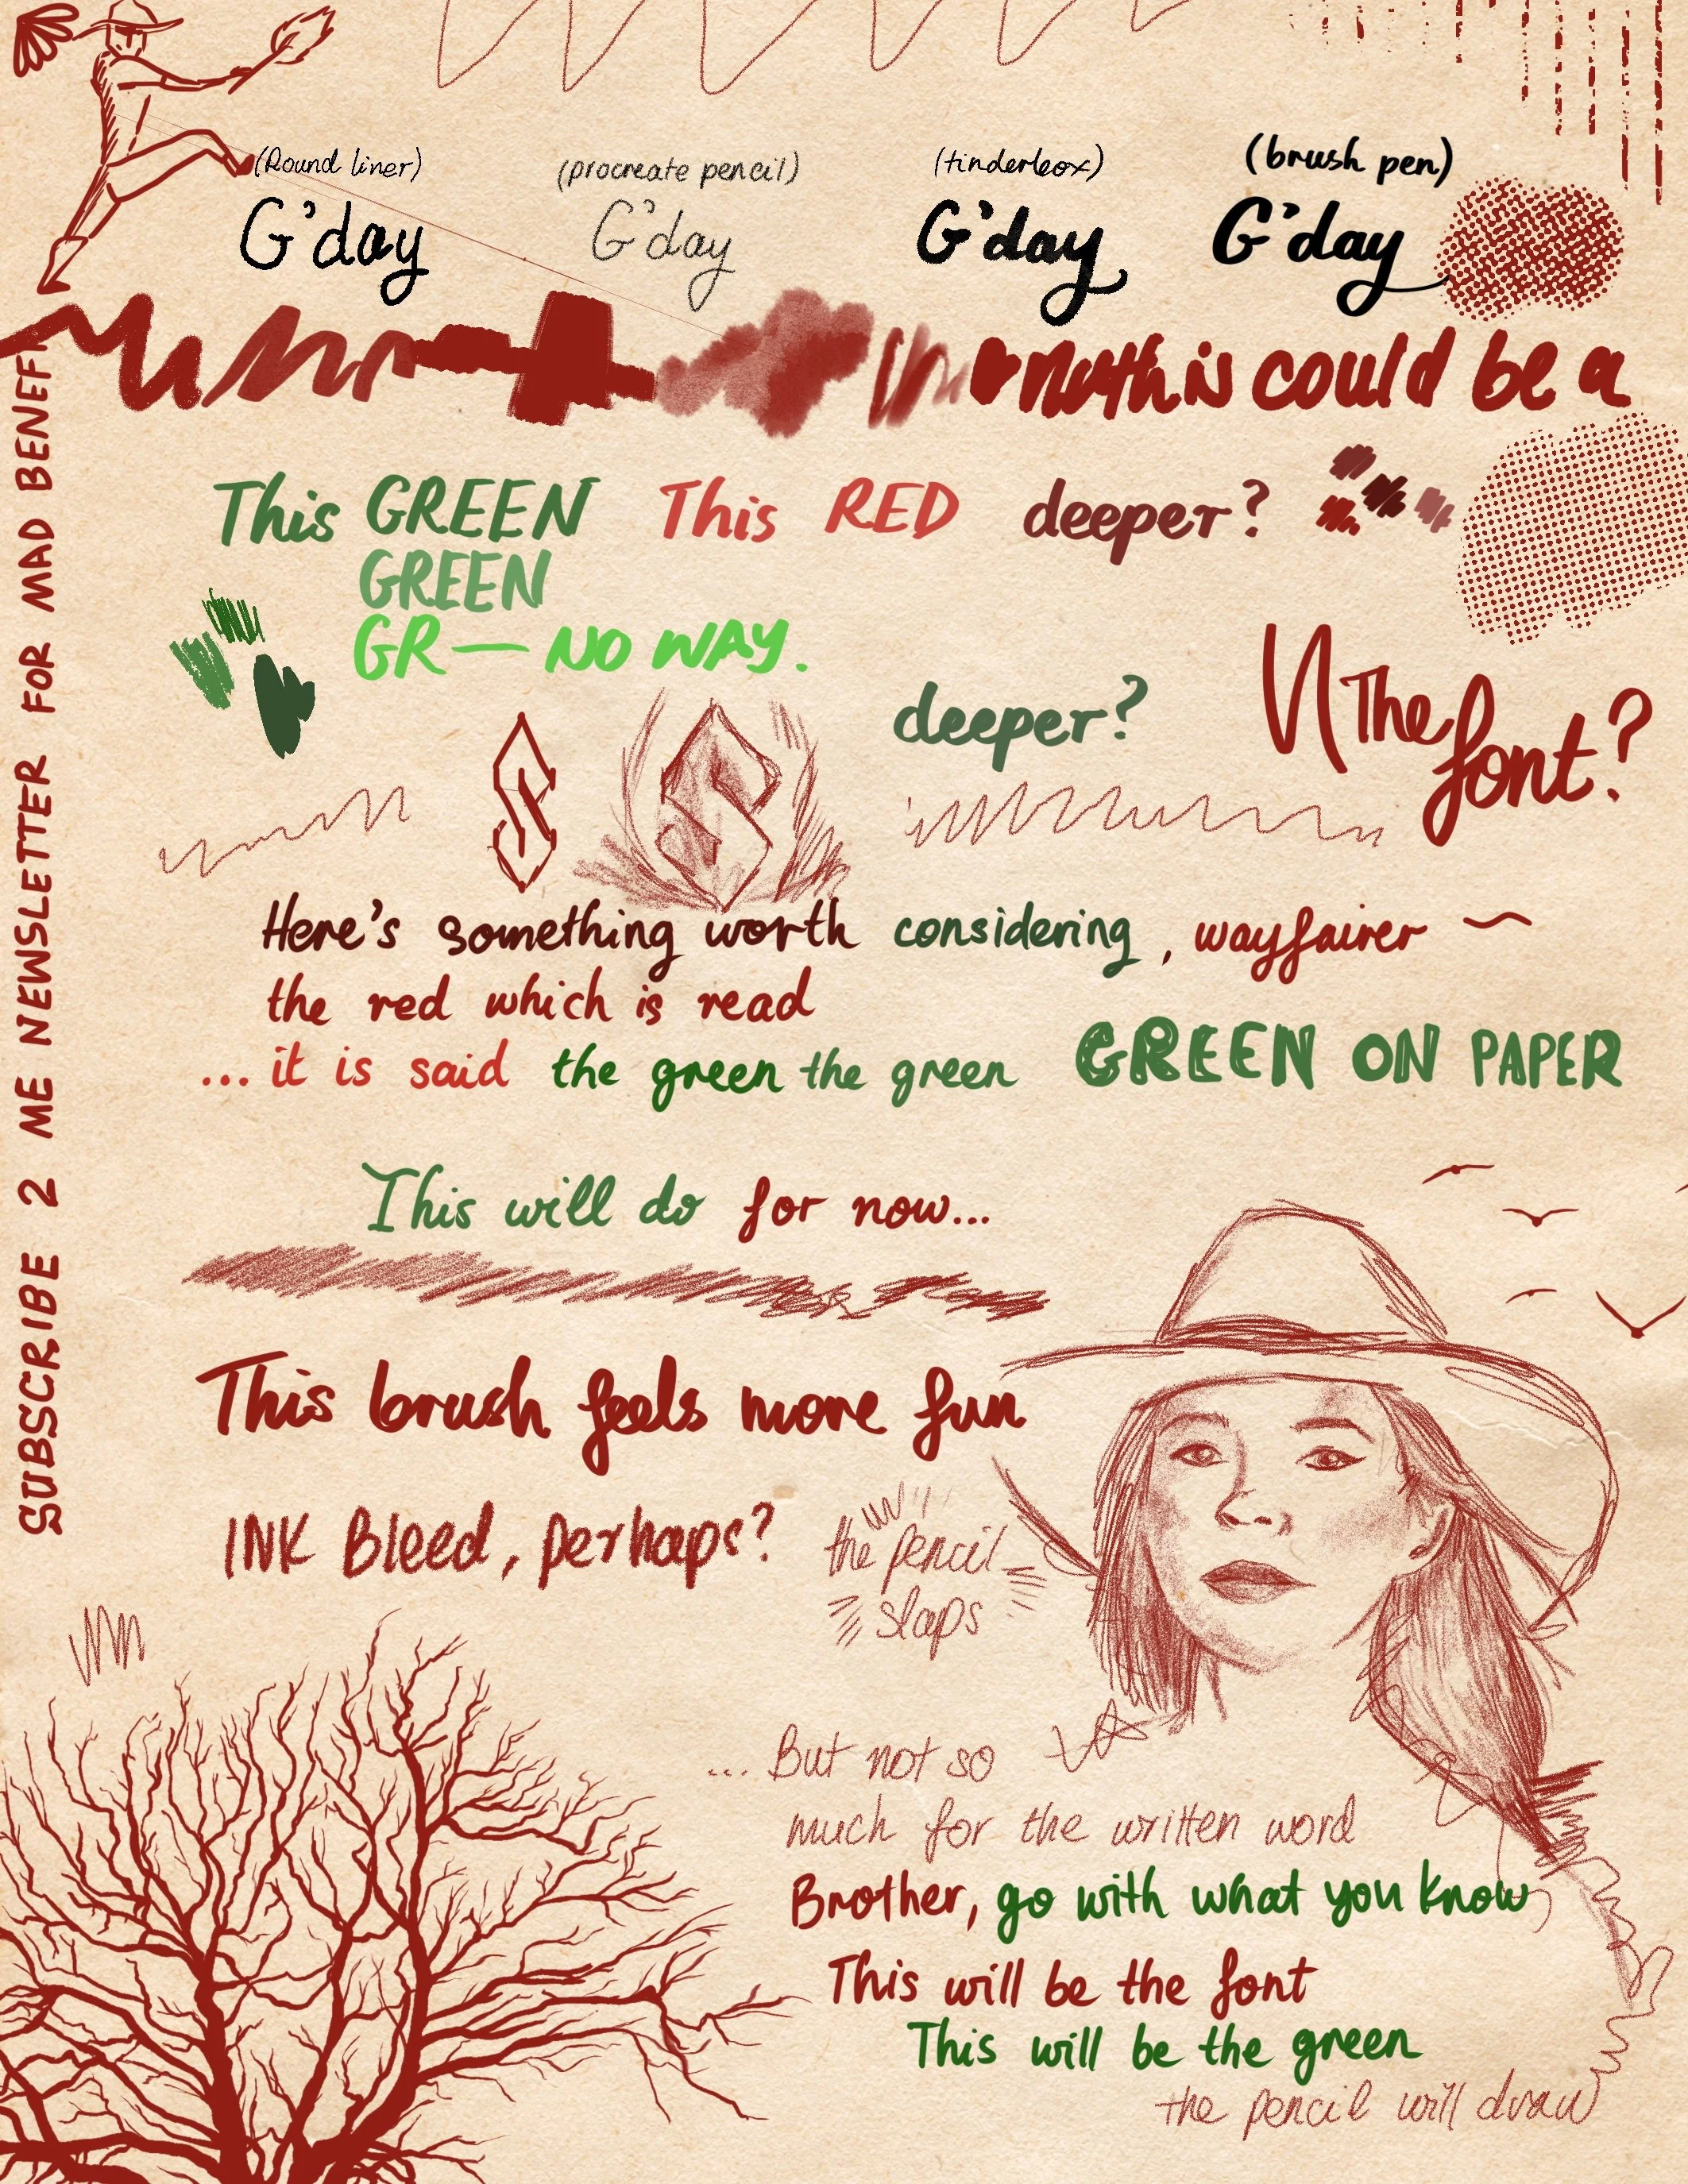 (Round liner) (procreate pencil) (tinderbox) (brush pen)
G'day G'day G'day G'day
this could be a
This GREEN This RED deeper?
GREEN
GR— NO WAY.
deeper?
The font?
Here's something worth considering, wayfairer ~
the red which is read
...it is said the green the green GREEN ON PAPER
This will do for now...
This brush feels more fun
INK Bleed, perhaps?
the pencil
slaps
...But not so
much for the written word
Brother, go with what you know,
This will be the font
This will be the green
the pencil will draw
SUBSCRIBE 2 ME NEWSLETTER FOR MAD BENEF